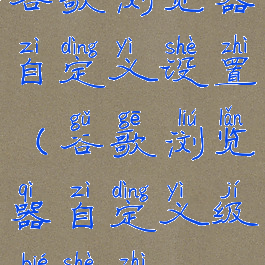 谷歌浏览器
zì dìng yì shè zhì
自定义设置
gǔ gē liú lǎn
(谷歌浏览
qì zì dìng yì jí
器自定义级
bié shè zhì